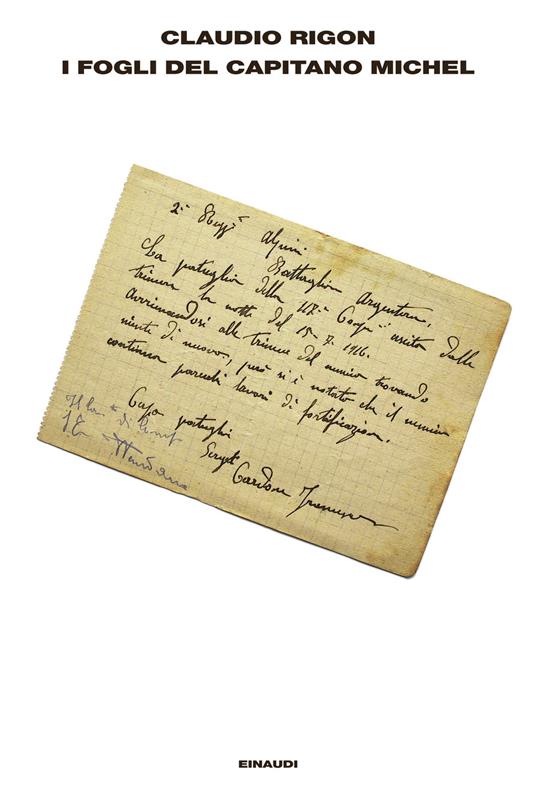 CLAUDIO RIGON
I FOGLI DEL CAPITANO MICHEL
2° Regg.to Alpini. Battaglion Argentera.
La pattuglia della 117ª Comp. uscita dalle
trincee la notte del 15-7-1916.
Avvicinandosi alle trincee del nemico trovando
niente di nuovo, però si è notato che il nemico
continua parecchi lavori di fortificazione.
Capo pattuglia
Serg.te
Cardone
EINAUDI